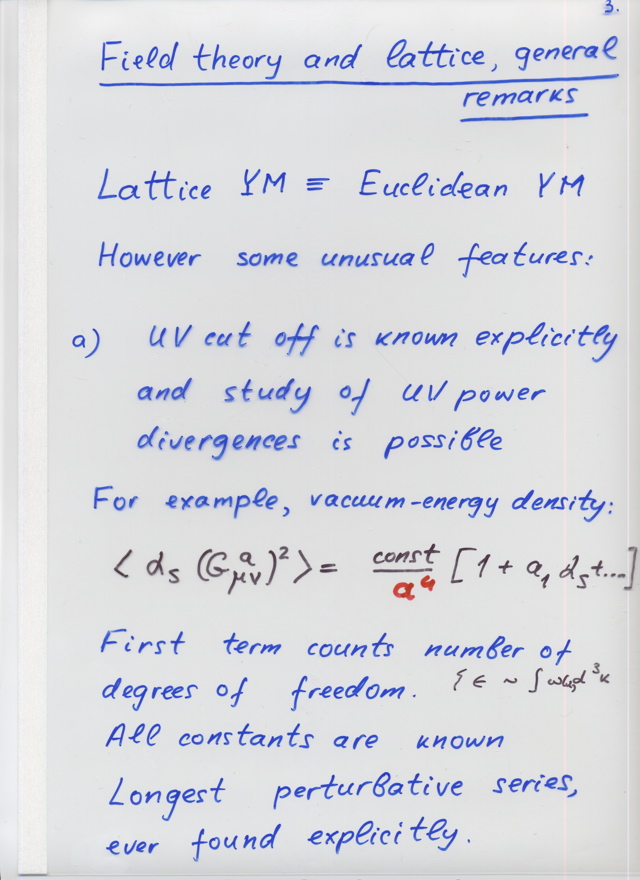 3.
Field theory and lattice, general
remarks
Lattice YM ≡ Euclidean YM
However some unusual features:
a) UV cut off is known explicitly
and study of UV power
divergences is possible
For example, vacuum-energy density:
< α_s (G^a_μν)² > = const/a⁴ [1 + a₁ α_s + ...]
First term counts number of
degrees of freedom. { ε ~ ∫ d³k
All constants are known
Longest perturbative series,
ever found explicitly.